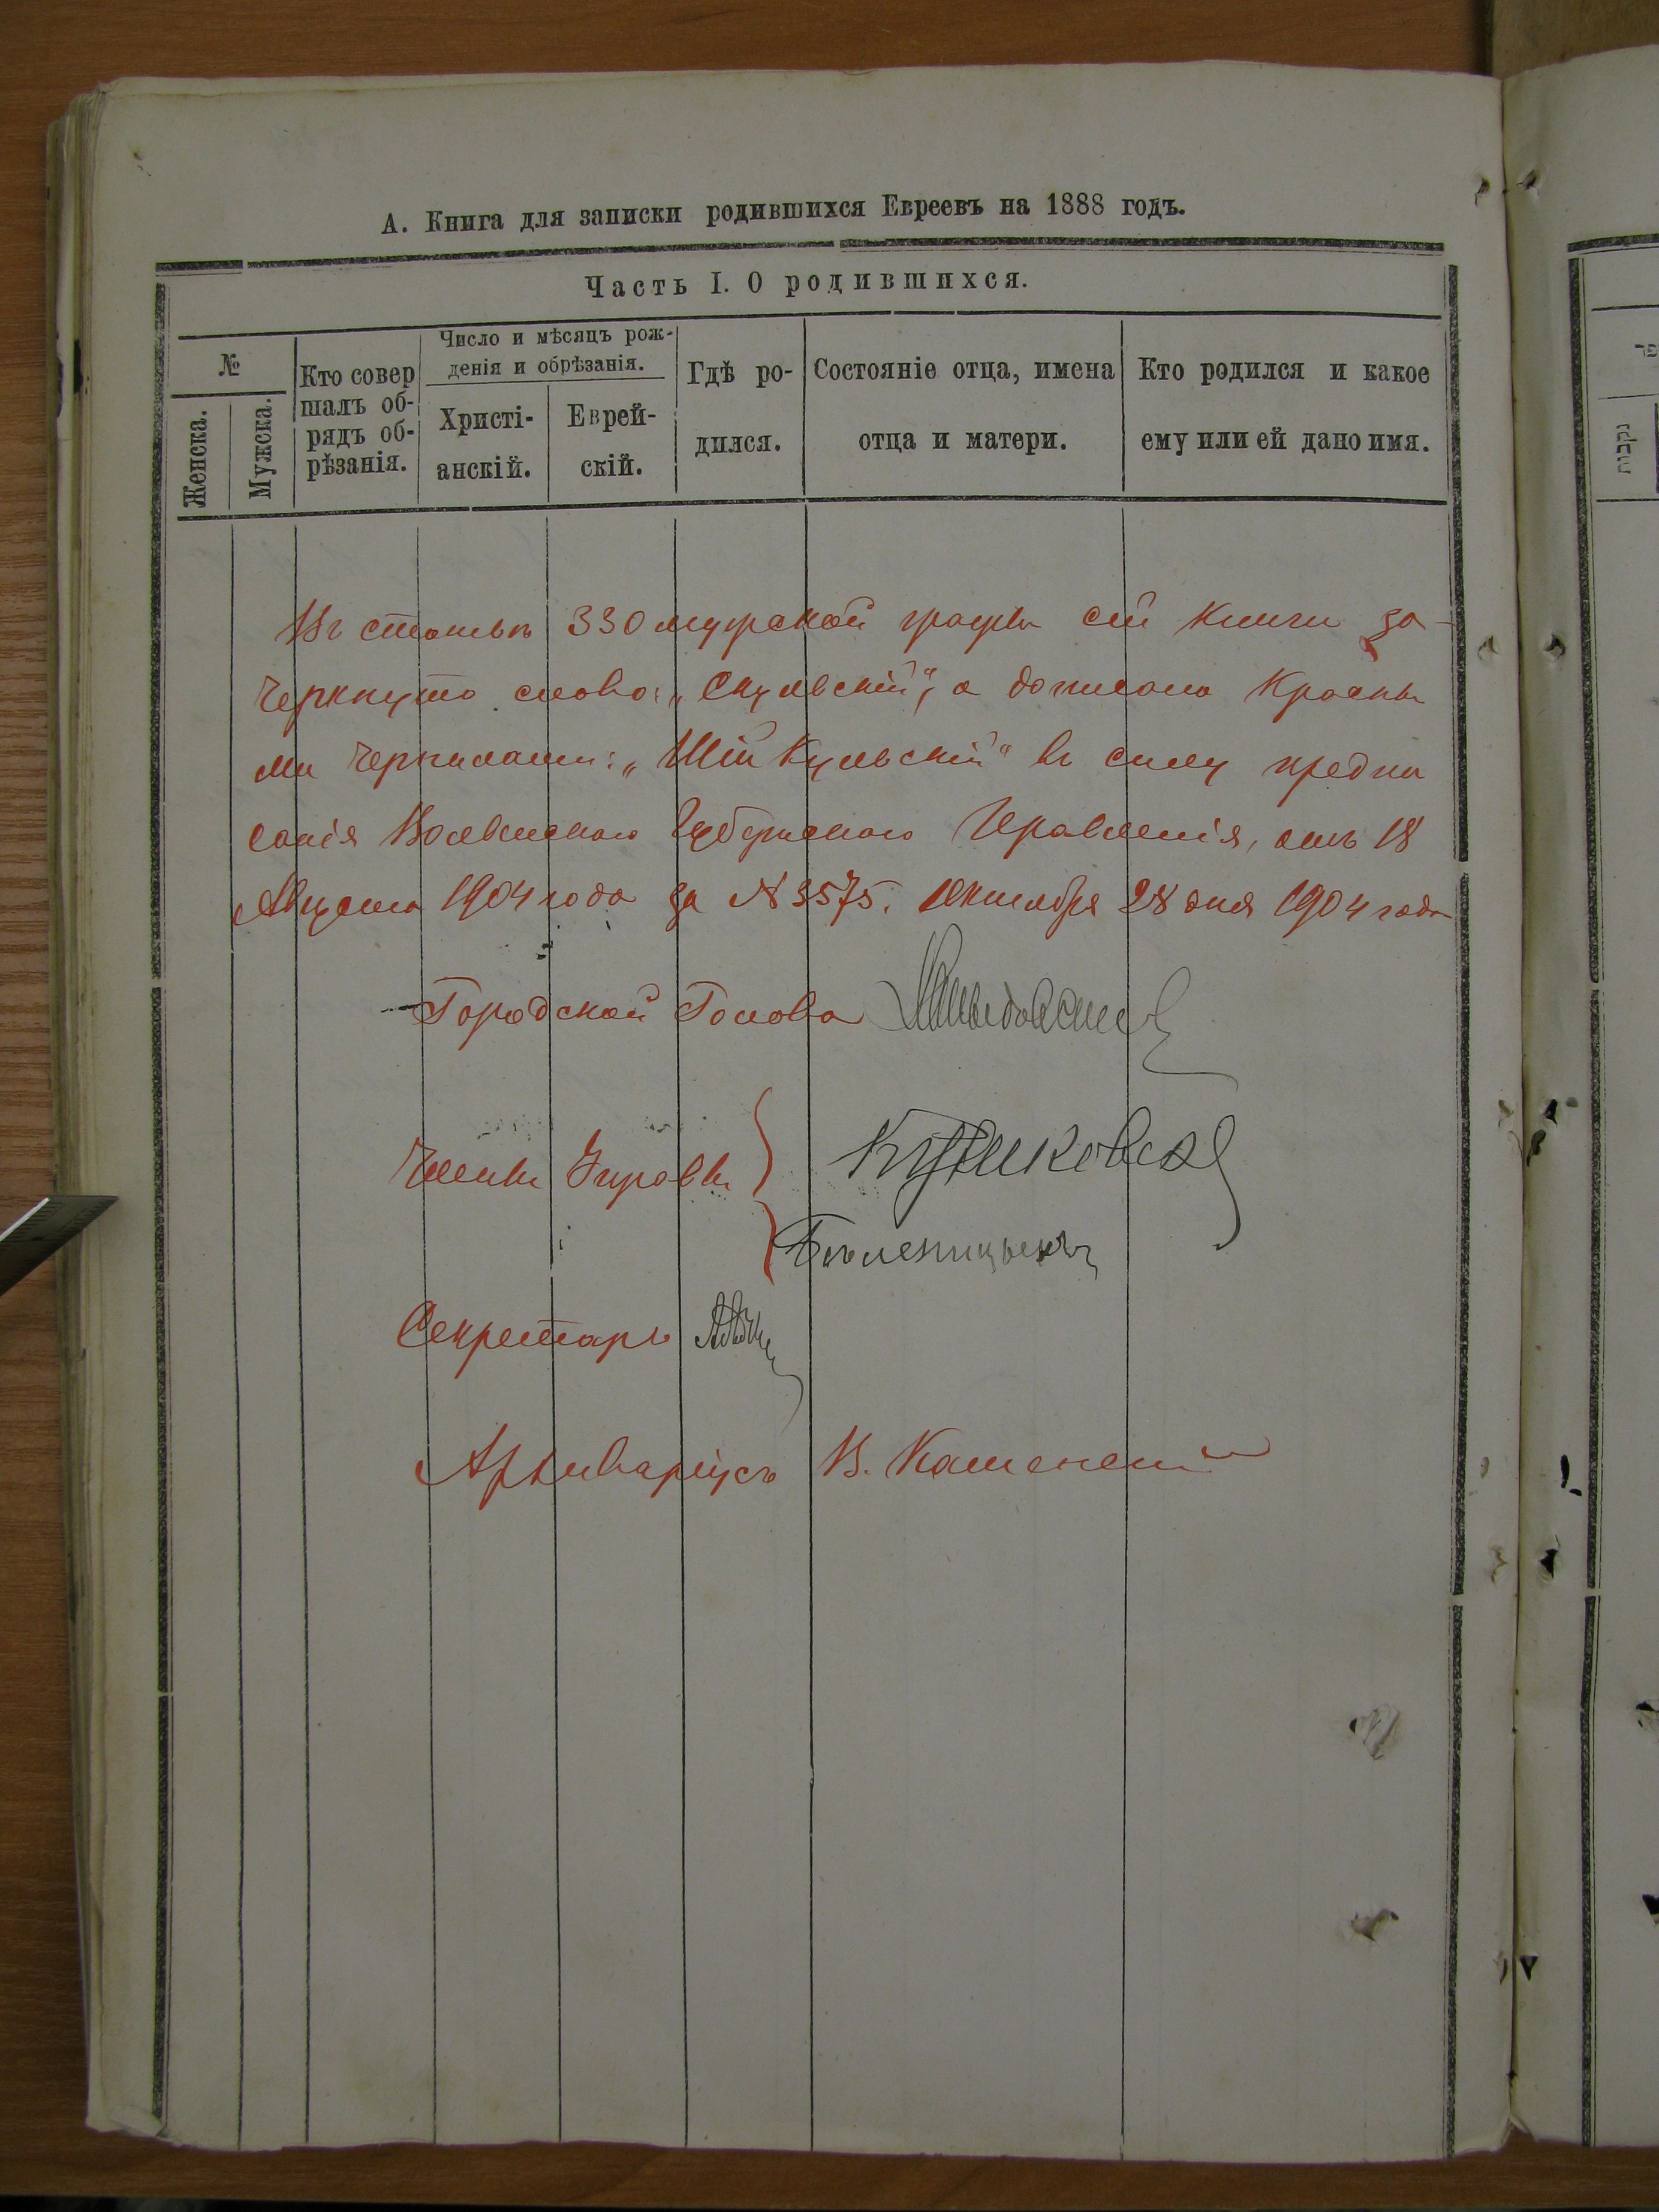 А. Книга для записки родившихся Евреевъ на 1888 годъ.
Часть I. О родившихся.
№
Женска.
Мужска.
Кто совер
шалъ об-
рядъ об-
рѣзанія.
Число и мѣсяцъ рож-
денія и обрѣзанія.
Христі-
анскій.
Еврей-
скій.
Гдѣ ро-
дился.
Состояніе отца, имена
отца и матери.
Кто родился и какое
ему или ей дано имя.
Въ статьѣ 330 мужской графы сей Книги за-
черкнуто слово: „Скульскій“, а дописано Красны
ми Чернилами: „Шійкульскій“ въ силу предпи
санія Волынскаго Губернскаго Правленія, отъ 18
Августа 1904 года за № 3575. Октября 28 дня 1904 года
Городской Голова
Члены Управы
Секретарь
Архиваріусъ В. Каменецкій
נקבות